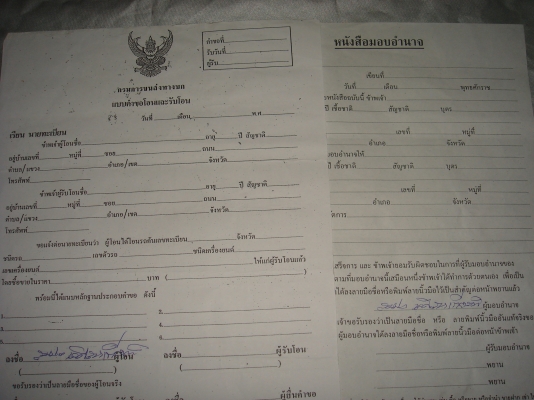 คำขอที่
รับวันที่
ผู้รับ
กรมการขนส่งทางบก
แบบคำขอโอนและรับโอน
วันที่ เดือน พ.ศ.
เรียน นายทะเบียน
ข้าพเจ้าผู้โอนชื่อ อายุ ปี สัญชาติ
อยู่บ้านเลขที่ หมู่ที่ ซอย ถนน
ตำบล/แขวง อำเภอ/เขต จังหวัด
โทรศัพท์
ข้าพเจ้าผู้รับโอนชื่อ อายุ ปี สัญชาติ
อยู่บ้านเลขที่ หมู่ที่ ซอย ถนน
ตำบล/แขวง อำเภอ/เขต จังหวัด
โทรศัพท์
ขอแจ้งต่อนายทะเบียนว่า ผู้โอนได้โอนรถคันเลขทะเบียน จังหวัด
ชนิดรถ เลขตัวรถ ชนิดเครื่องยนต์
เลขเครื่องยนต์ ให้แก่ผู้รับโอนแล้ว
โดยซื้อขายราคา บาท ( )
พร้อมนี้ได้แนบหลักฐานประกอบคำขอ ดังนี้
1.
2.
3.
ลงชื่อ ผู้โอน ลงชื่อ ผู้รับโอน
( ) ( )
ขอรับรองว่าเป็นลายมือชื่อของผู้โอนจริง
ผู้ยื่นคำขอ
หนังสือมอบอำนาจ
เขียนที่
วันที่ เดือน พุทธศักราช
หนังสือฉบับนี้ ข้าพเจ้า
ปี เชื้อชาติ สัญชาติ บุตร
เลขที่ หมู่ที่
อำเภอ จังหวัด
มอบอำนาจให้
ปี เชื้อชาติ สัญชาติ บุตร
เลขที่ หมู่ที่
อำเภอ จังหวัด
จัดการ
เสร็จการ และ ข้าพเจ้ายอมรับผิดชอบในการที่ผู้รับมอบอำนาจของ
ตามที่มอบอำนาจนี้เสมือนหนึ่งข้าพเจ้าได้ทำการด้วยตนเอง เพื่อเป็น
ได้ลงลายมือชื่อหรือพิมพ์ลายนิ้วมือไว้เป็นสำคัญต่อหน้าพยานแล้ว
ผู้มอบอำนาจ
เจ้าขอรับรองว่าเป็นลายมือชื่อ หรือ ลายพิมพ์นิ้วมืออันแท้จริงของ
ผู้มอบอำนาจได้ลงลายมือชื่อหรือพิมพ์ลายนิ้วมือต่อหน้าข้าพเจ้า
ผู้รับมอบอำนาจ
พยาน
พยาน